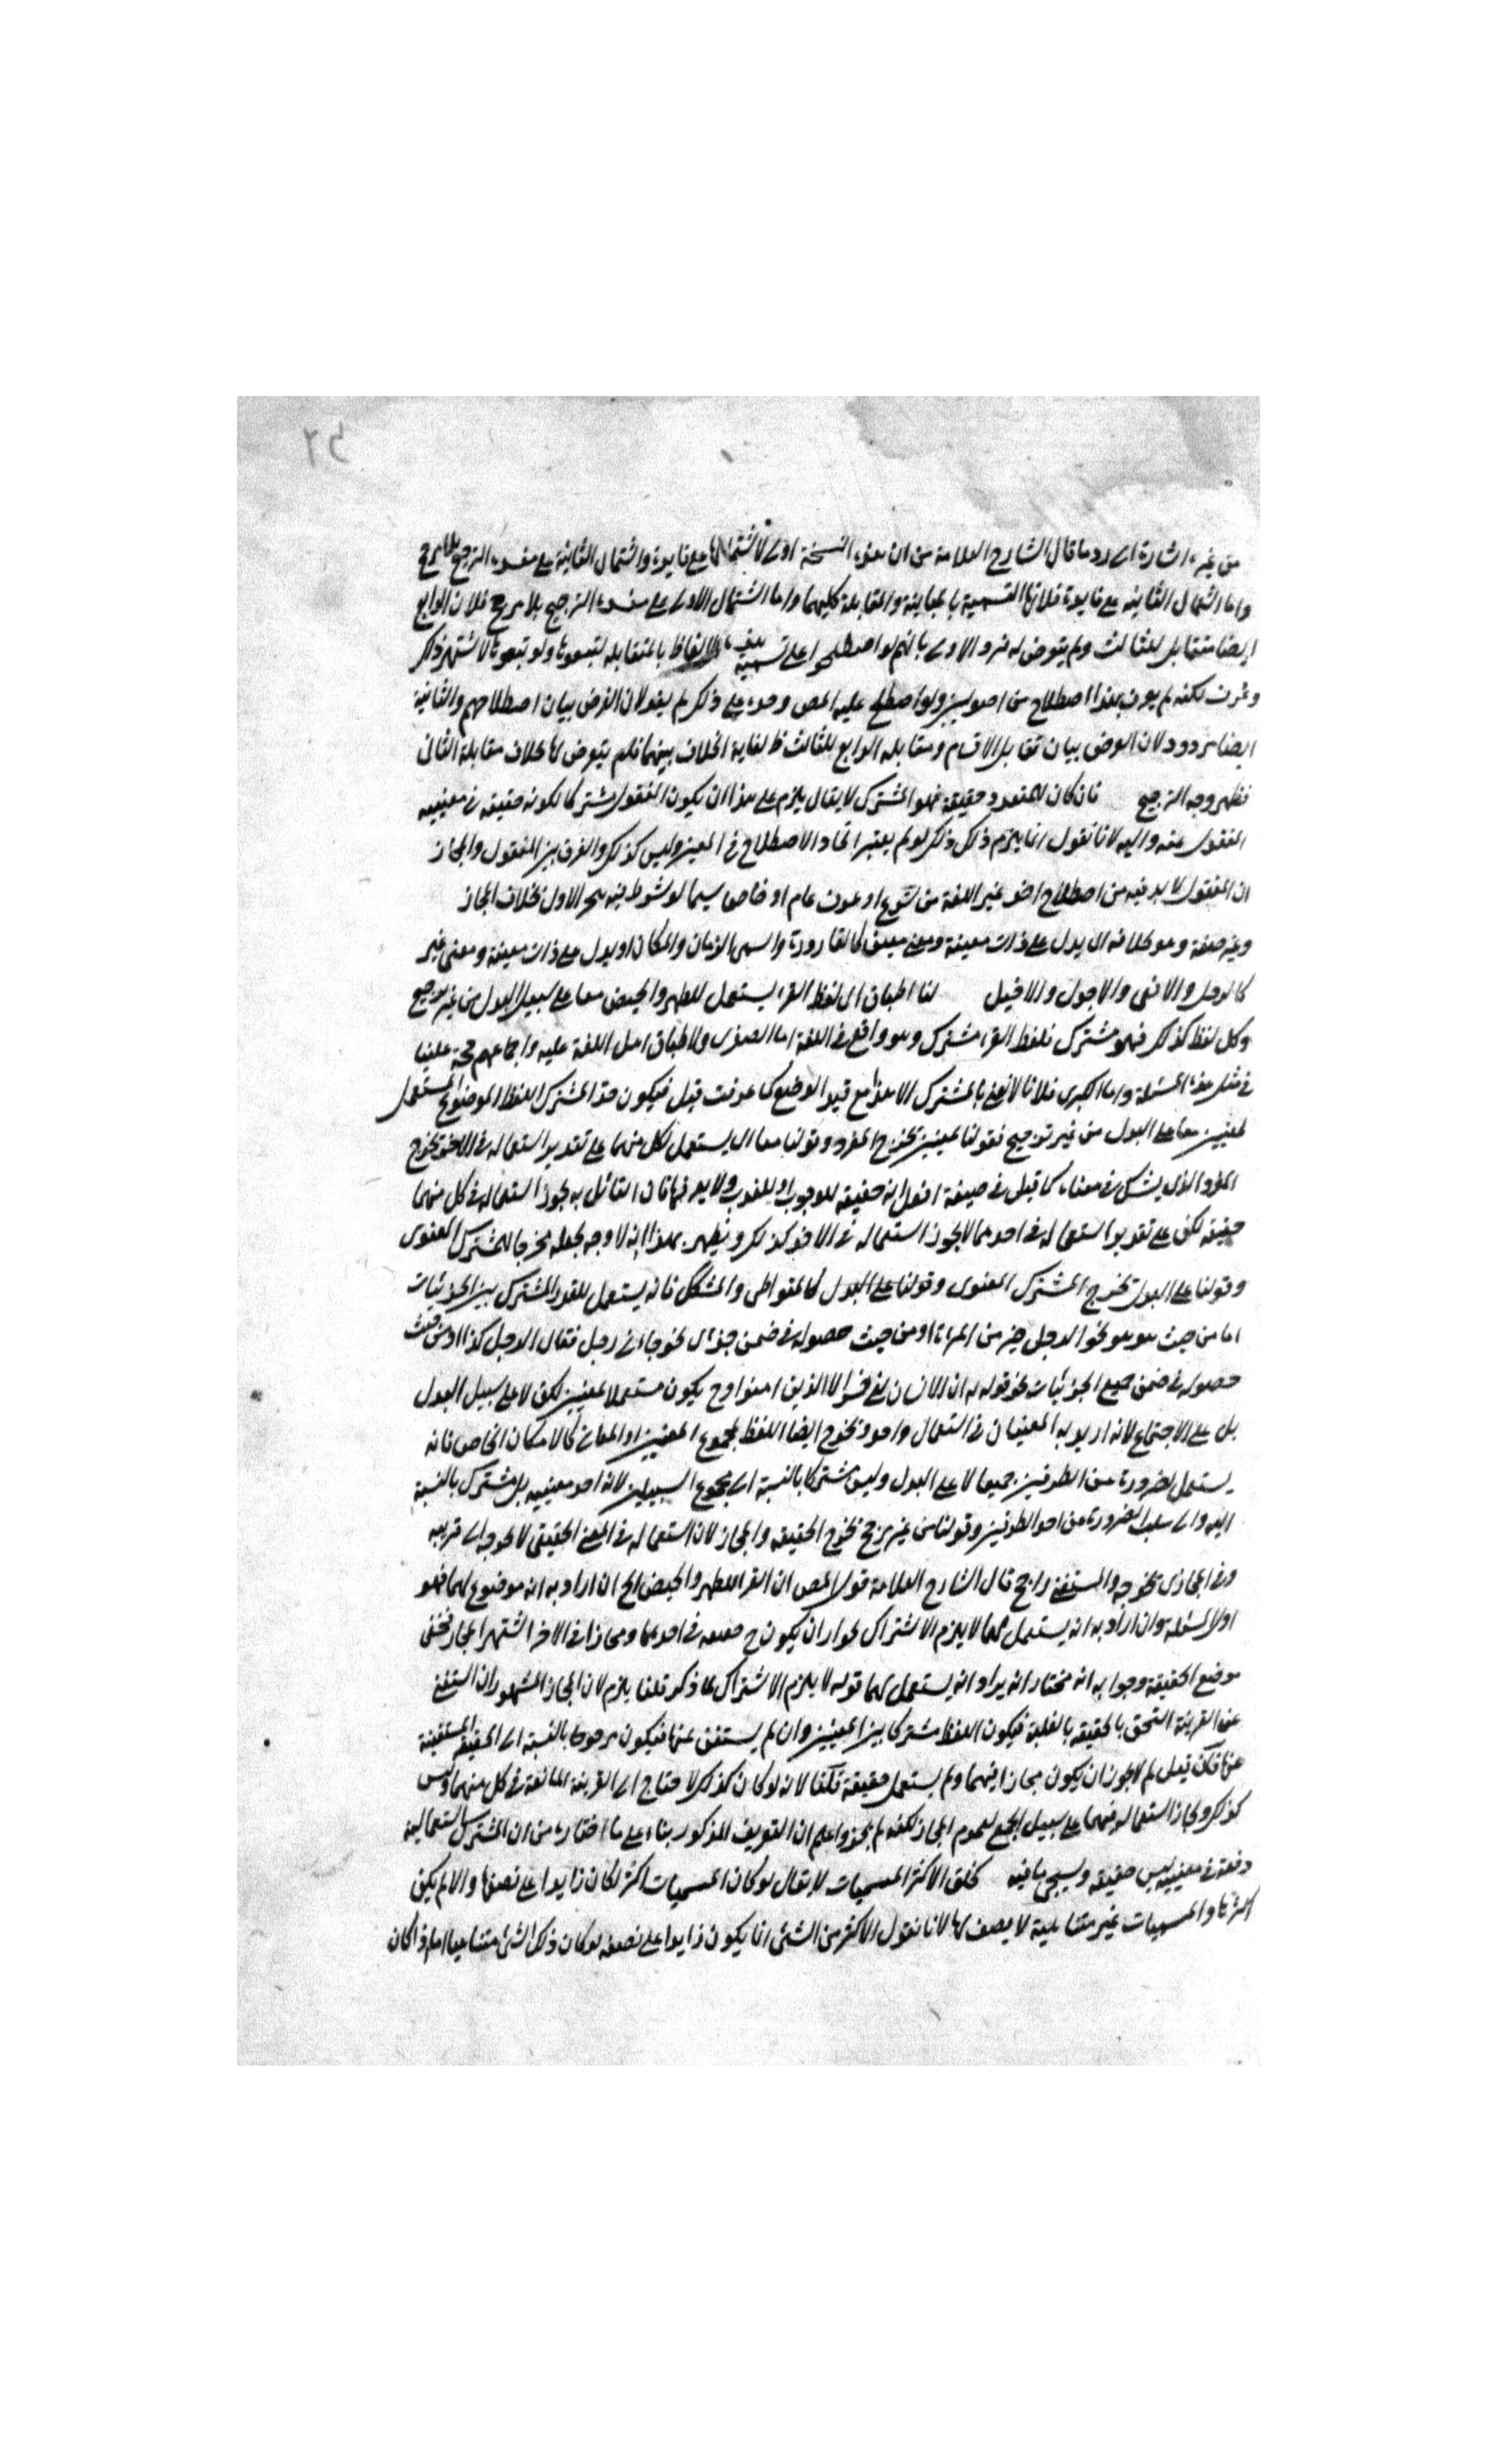 ٥٢
من غيره اشارة الى رد ما قال الشارح العلامة من ان هذه النسخة اولى لاشتمالها على فايدة واشتمال الثانية على مفسدة الترجيح بلا مرجح
واما اشتمال الثانية على فايدة فلانها التسمية بالمباينة والمقابلة كليهما واما اشتمال الاولى على مفسدة الترجيح بلا مرجح فلان الرابع
ايضا متقابل للثالث ولم يتعرض له فرد الاولى بانهم لو اصطلحوا على تسمية هذه الالفاظ بالمتقابلة لتبعوها ولو تبعوها لاشتهر ذلك
وعرف لكنه لم يعرف بهذا اصطلاح من اصوليين ولو اصطلح عليه المص وحده على ذلك لم يفد لان الغرض بيان اصطلاحهم والثانية
ايضا مردود لان الغرض بيان تقابل الاقسام ومقابلة الرابع للثالث ظ لغاية الخلاف بينهما فلم يتعرض لها بخلاف مقابلة الثانى
فظهر وجه الترجيح فان كان للمتعدد حقيقة فهو المشترك لا يقال يلزم على هذا ان يكون المنقول مشتركا لكونه حقيقة فى معنييه
المنقول عنه واليه لانا نقول انما يلزم ذلك لو لم يعتبر اتحاد الاصطلاح فى المعنيين وليس كذلك والفرق بين المنقول والمجاز
ان المنقول لا بد فيه من اصطلاح اخر غير اللغة من شرع او عرف عام او خاص سيما لو شرط فيه هجر الاول بخلاف المجاز
وغير صفة وهو بخلافه اى يدل على ذات معينة ومعنى معين كالقارورة واسمى الزمان والمكان او يدل على ذات معينة ومعنى غير
لنا اطباق ان لفظ القرء يستعمل للطهر والحيض معا على سبيل البدل من غير ترجيح
وكل لفظ كذلك فهو مشترك فلفظ القرء مشترك وهو واقع فى اللغة اما الصغرى ولاطباق اهل اللغة عليه واجماعهم حجة علينا
فى مثل هذه المسئلة واما الكبرى فلانا لا نعنى بالمشترك الا هذا مع قيد الوضع كما عرفت قبل فيكون حد المشترك اللفظ الموضوع المستعمل
لمعنيين معا على البدل من غير ترجيح فقولنا لمعنيين يخرج المفرد وقولنا معا اى يستعمل لكل منهما على تقدير استعماله فى الاخر يخرج
المفرد الذى يشك فى معناه كما قيل فى صيغة افعل انه حقيقة للوجوب او للندب ولا يدرى فان القائل به يجوز استعماله فى كل منهما
حقيقة لكن على تقدير استعماله فى احدهما لا يجوز استعماله فى الاخر كذلك ويظهر بهذا انه لا وجه لجعله مخرجا للمشترك المعنوى
وقولنا على البدل يخرج المشترك المعنوى وقولنا على البدل كالمتواطى والمشكك فانه يستعمل للقدر المشترك بين الجزئيات
اما من حيث هو هو نحو الرجل خير من المراة او من حيث حصوله فى ضمن جزئى نحو جاءنى رجل فقال الرجل كذا او من حيث
حصوله فى ضمن جميع الجزئيات نحو قوله ان الانسان لفى خسر الا الذين امنوا وح يكون مستعملا لمعنيين لكن لا على سبيل البدل
بل على الاجتماع لانه اريد به المعنيان فى استعمال واحد ويخرج ايضا اللفظ لمجموع المعنيين او المعانى كالامكان الخاص فانه
يستعمل لضرورة عن الطرفين جميعا لا على البدل وليس مشتركا بالنسبة الى مجموع السلبين لانه احد معنييه بل مشترك بالنسبة
اليه والى سلب الضرورة عن احد الطرفين وقولنا من غير ترجيح يخرج الحقيقة والمجاز لان استعماله فى المعنى الحقيقى لا يحوجه الى قرينة
وفى المجازى يحوجه والمستغنى راجح قال الشارح العلامة قول المص ان القرء للطهر والحيض الخ ان اراد به انه موضوع لهما فهو
اول المسئلة وان اراد به انه يستعمل لهما لا يلزم الاشتراك لجواز ان يكون ح حقيقة فى احدهما ومجازا فى الاخر اشتهر المجاز فخفى
موضع الحقيقة وجوابه انه مختار انه يراد انه يستعمل لهما قوله لا يلزم الاشتراك لما ذكر قلنا يلزم لان المجاز المشهور ان استغنى
عن القرينة التحق بالحقيقة بالغلبة فيكون اللفظ مشتركا بين المعنيين وان لم يستغن عنها فيكون مرجوحا بالنسبة الى الحقيقة المستغنية
عنها فان قيل لم لا يجوز ان يكون مجازا فيهما ولم يستعمل حقيقة قلنا لانه لو كان كذلك لاحتاج الى القرينة المانعة فى كل منهما وليس
كذلك ولجاز استعماله فيهما على سبيل الجمع لعموم المجاز لكنه لم يجز واعلم ان التعريف المذكور بناء على ما اختاره من ان المشترك استعماله
دفعة فى معنييه ليس حقيقة وسيجئ ما فيه الاكثر المسميات لا يقال لو كان المسميات اكثر لكان زايدا على نصفها والا لم يكن
اكثرها والمسميات غير متناهية لا نصف لها لانا نقول الاكثر من الشئ انما يكون زايدا على نصفه لو كان ذلك الشئ متناهيا اما اذا كان